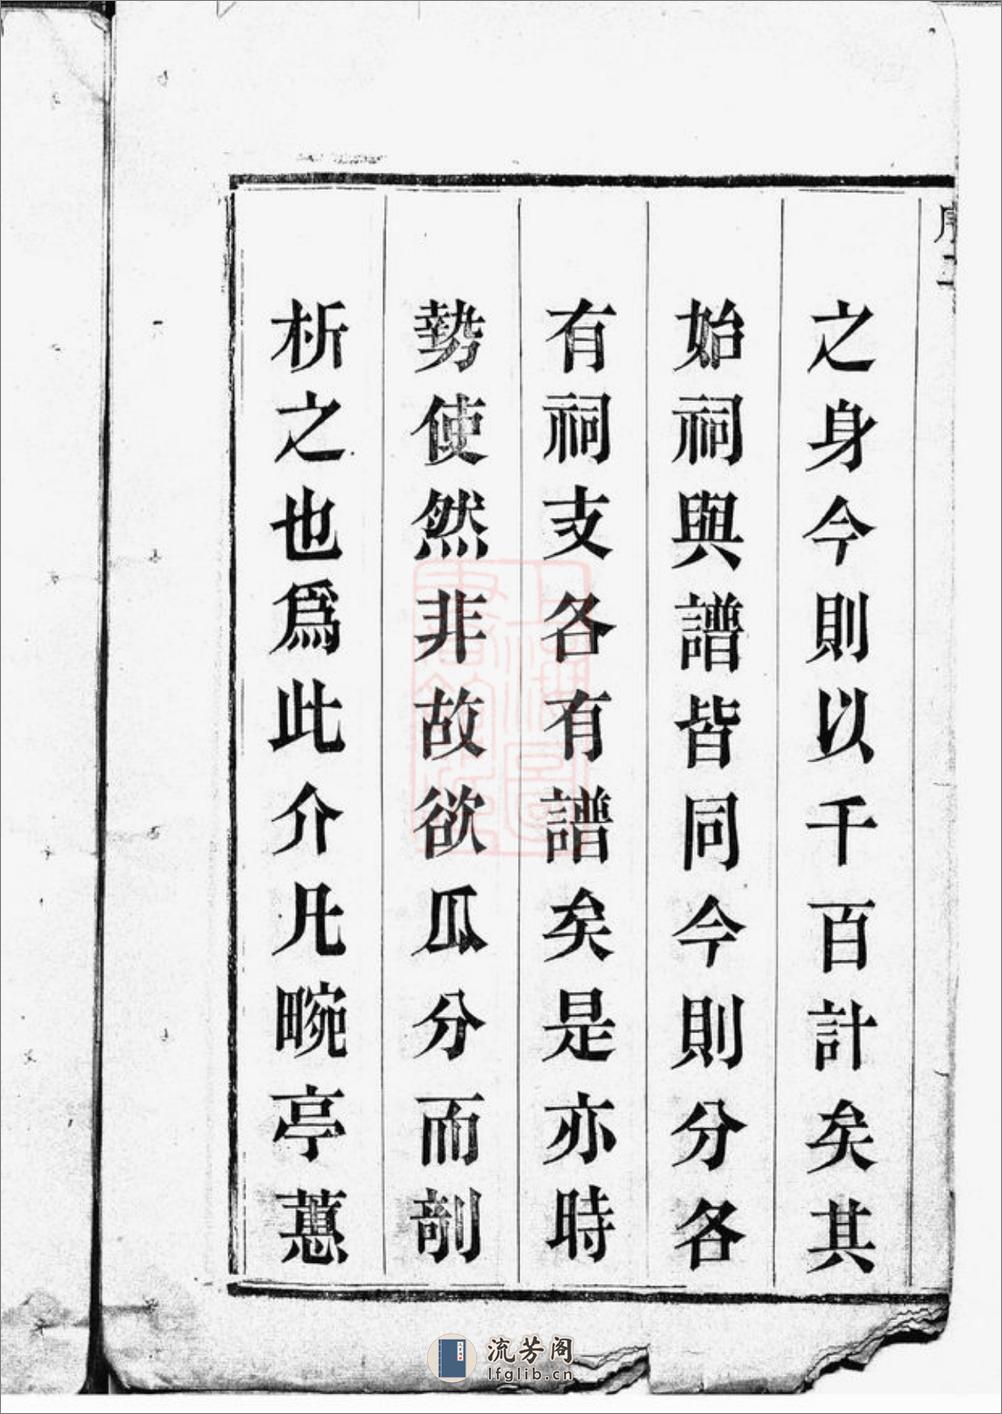 序二
之身今則以千百計矣其
始祠與譜皆同今則分各
有祠支各有譜矣是亦時
勢使然非故欲瓜分而剖
析之也爲此介凡畹亭蕙
流芳阁
lfglib.cn